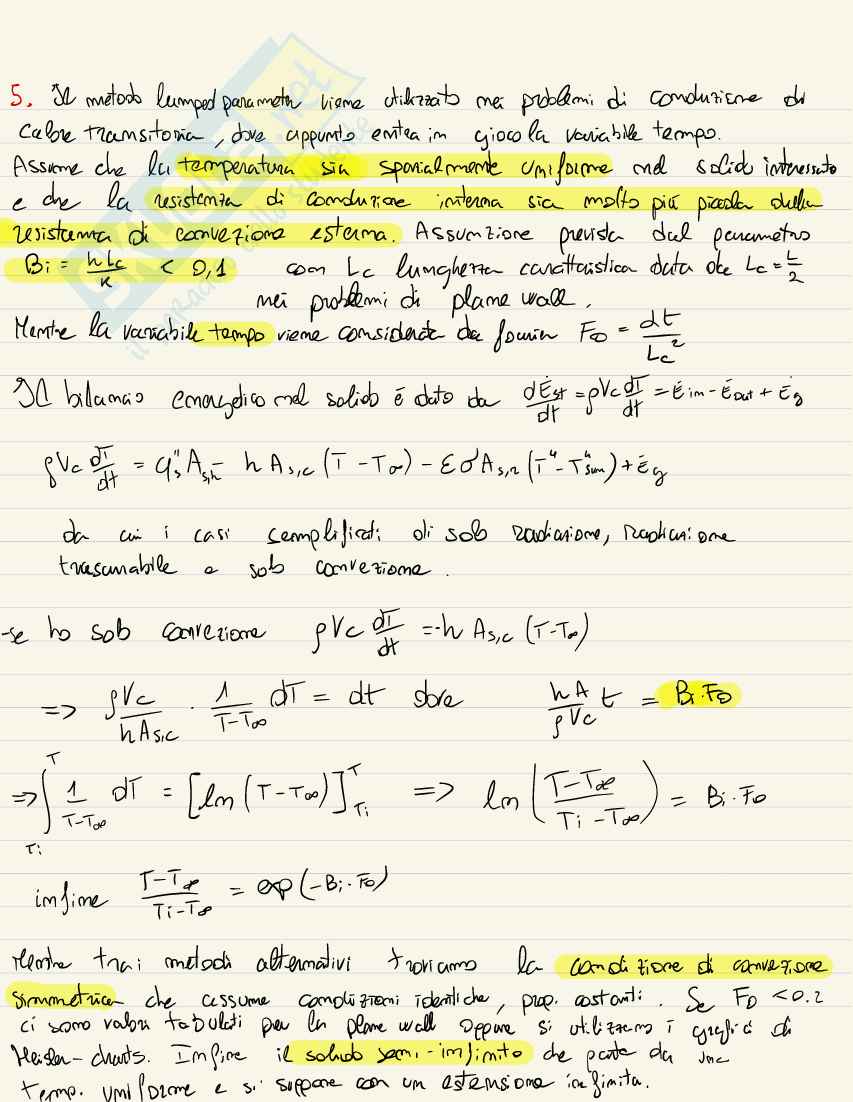 5. Il metodo lumped parameter viene utilizzato nei problemi di conduzione di
calore transitoria, dove appunto entra in gioco la variabile tempo.
Assume che la temperatura sia spazialmente uniforme nel solido interessato
e che la resistenza di conduzione interna sia molto più piccola della
resistenza di convezione esterna. Assunzione prevista dal parametro
Bi = hLc/k < 0,1 con Lc lunghezza caratteristica data da Lc = L/2
nei problemi di plane wall.
Mentre la variabile tempo viene considerata da fourier Fo = αt/Lc²
Il bilancio energetico nel solido è dato da dEst/dt = ρVc dT/dt = Ėin - Ėout + Ėg
ρVc dT/dt = q"s As,h - h As,c (T - T∞) - εσ As,r (T⁴ - T⁴sur) + Ėg
da cui i casi semplificati di solo radiazione, radiazione
trascurabile e solo convezione.
-se ho solo convezione ρVc dT/dt = -h As,c (T-T∞)
=> ρVc/hAs,c · 1/T-T∞ dT = dt dove hA/ρVc t = Bi·Fo
=> ∫ Ti T 1/T-T∞ dT = [ln (T-T∞)] T Ti => ln (T-T∞/Ti-T∞) = Bi·Fo
infine T-T∞/Ti-T∞ = exp(-Bi·Fo)
Mentre tra i metodi alternativi troviamo la condizione di convezione
simmetrica che assume condizioni identiche, prop. costanti. Se Fo < 0.2
ci sono valori tabulati per la plane wall oppure si utilizzano i grafici di
Heisler-charts. Infine il solido semi-infinito che parte da una
temp. uniforme e si suppone con un estensione infinita.